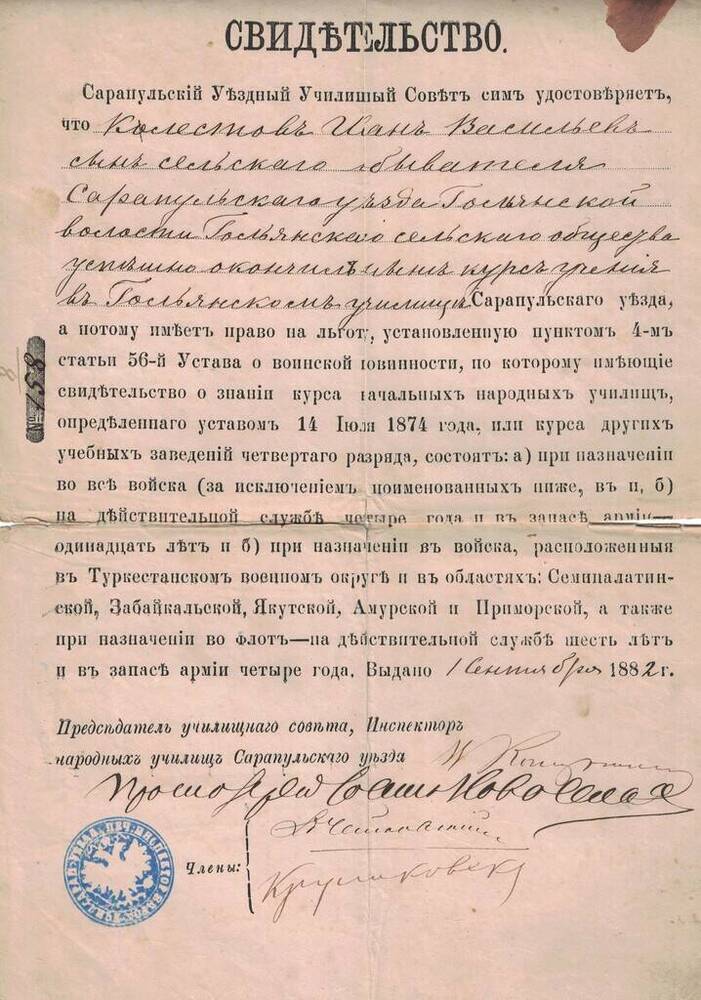 СВИДѢТЕЛЬСТВО.
Сарапульскій Уѣздный Училищный Совѣтъ симъ удостовѣряетъ,
что Колестовъ Иванъ Васильевъ
сынъ сельскаго обывателя
Сарапульскаго уѣзда Гольянской
волости Гольянскаго сельскаго общества
успѣшно окончилъ курсъ ученія
въ Гольянскомъ училищѣ Сарапульскаго уѣзда,
а потому имѣетъ право на льготу, установленную пунктомъ 4-мъ
статьи 56-й Устава о воинской повинности, по которому имѣющіе
свидѣтельство о знаніи курса начальныхъ народныхъ училищъ,
опредѣленнаго уставомъ 14 Іюля 1874 года, или курса другихъ
учебныхъ заведеній четвертаго разряда, состоятъ: а) при назначеніи
во всѣ войска (за исключеніемъ поименованныхъ ниже, въ п, б)
на дѣйствительной службѣ четыре года и въ запасѣ арміи—
одинадцать лѣтъ и б) при назначеніи въ войска, расположенныя
въ Туркестанскомъ военномъ округѣ и въ областяхъ: Семипалатин-
ской, Забайкальской, Якутской, Амурской и Приморской, а также
при назначеніи во флотъ—на дѣйствительной службѣ шесть лѣтъ
и въ запасѣ арміи четыре года. Выдано 1 Сентября 1882 г.
№ 158
Предсѣдатель училищнаго совѣта, Инспекторъ
народныхъ училищъ Сарапульскаго уѣзда
Члены: